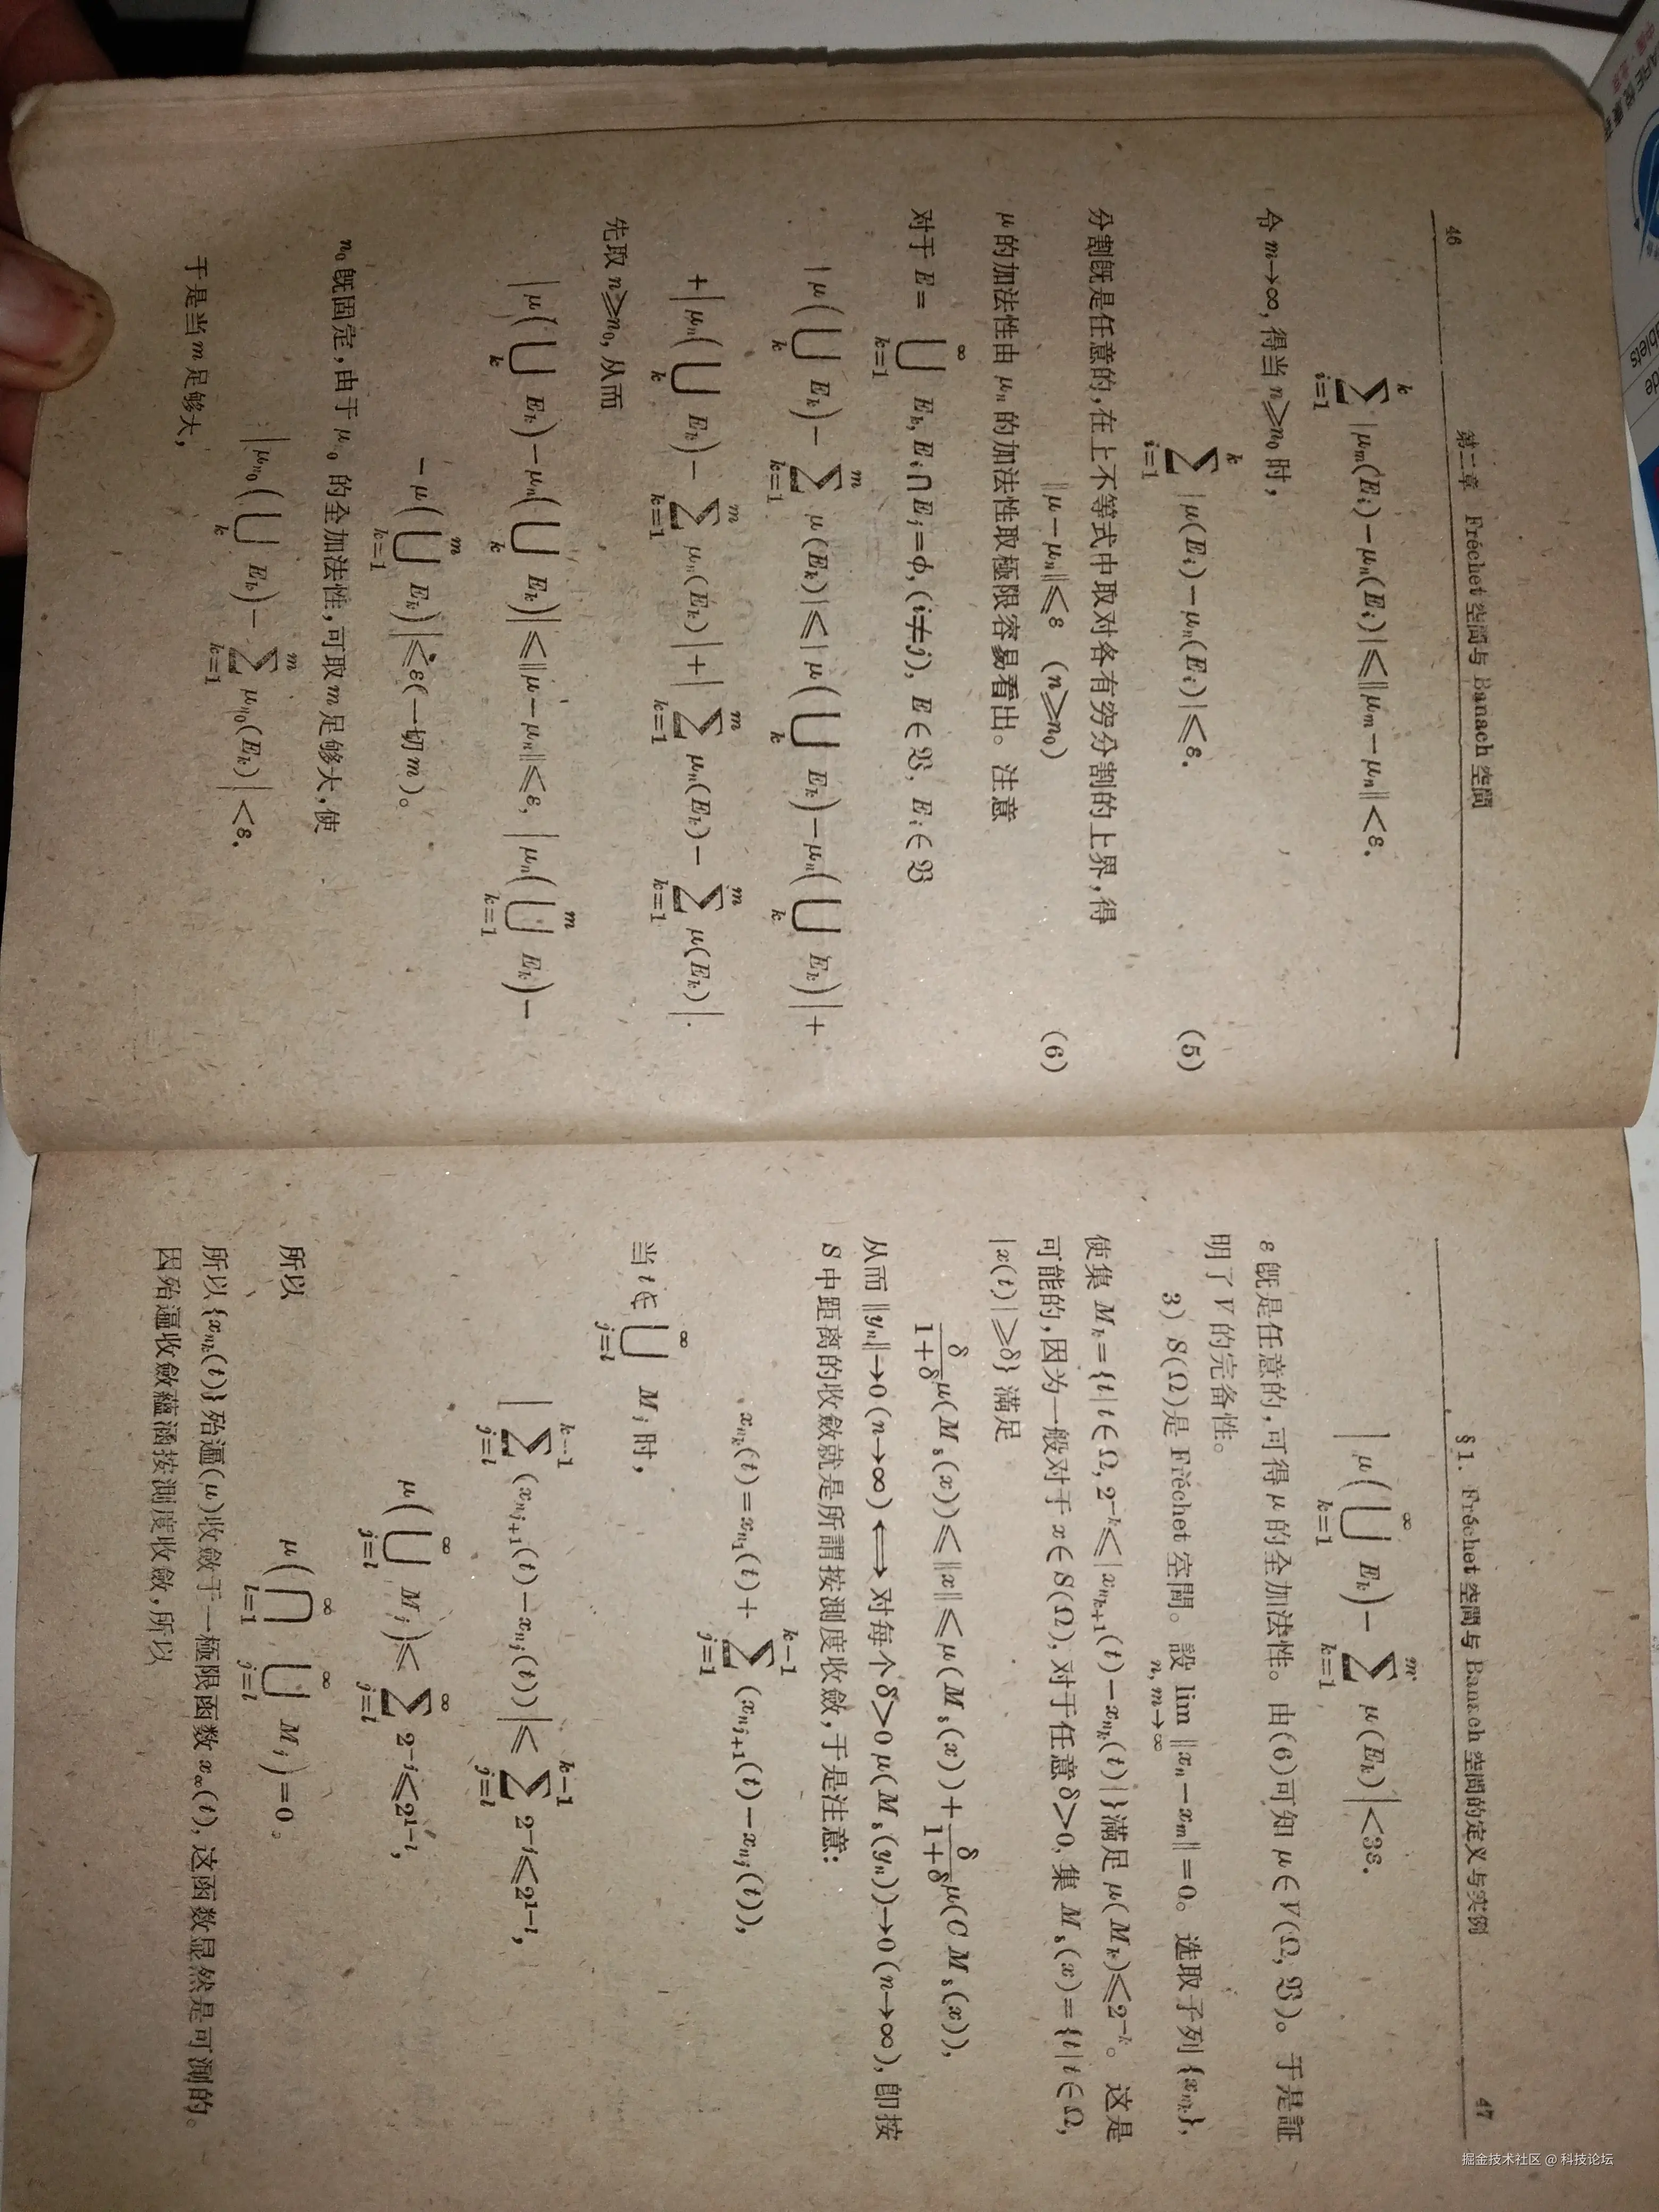 46
第二章 Fréchet 空間与 Banach 空間
k
∑ |μm(Ei)−μn(Ei)|⩽‖μm−μn‖<ε.
i=1
令 m→∞, 得当 n⩾n0 时,
k
∑ |μ(Ei)−μn(Ei)|⩽ε. (5)
i=1
分割既是任意的,在上不等式中取对各有穷分割的上界,得
‖μ−μn‖⩽ε (n⩾n0) (6)
μ 的加法性由 μn 的加法性取極限容易看出。注意
对于 E= ∞⋃k=1 Ek, Ei∩Ej=φ, (i≠j), E∈𝔅, Ei∈𝔅
|μ(⋃k Ek)− m∑k=1 μ(Ek)|⩽|μ(⋃k Ek)−μn(⋃k Ek)|+
+|μn(⋃k Ek)− m∑k=1 μn(Ek)|+| m∑k=1 μn(Ek)− m∑k=1 μ(Ek)|.
先取 n⩾n0, 从而
|μ(⋃k Ek)−μn(⋃k Ek)|⩽‖μ−μn‖⩽ε, |μn( m⋃k=1 Ek)−
−μ( m⋃k=1 Ek)|⩽ε(一切 m)。
n0 既固定,由于 μn0 的全加法性,可取 m 足够大,使
|μn0(⋃k Ek)− m∑k=1 μn0(Ek)|<ε.
于是当 m 足够大,
§1. Fréchet 空間与 Banach 空間的定义与实例
47
|μ( ∞⋃k=1 Ek)− m∑k=1 μ(Ek)|<3ε.
ε 既是任意的,可得 μ 的全加法性。由(6)可知 μ∈V(Ω, 𝔅)。于是証
明了 V 的完备性。
3) S(Ω)是 Fréchet 空間。設 lim n, m→∞ ‖xn−xm‖=0。选取子列{xnk},
使集 Mk={t|t∈Ω, 2−k⩽|xnk+1(t)−xnk(t)|}满足 μ(Mk)⩽2−k。这是
可能的,因为一般对于 x∈S(Ω), 对于任意 δ>0, 集 Mδ(x)={t|t∈Ω,
|x(t)|⩾δ}满足
δ/1+δ μ(Mδ(x))⩽‖x‖⩽μ(Mδ(x))+ δ/1+δ μ(CMδ(x)),
从而 ‖yn‖→0 (n→∞)⟺对每个 δ>0 μ(Mδ(yn))→0 (n→∞), 即按
S 中距离的收斂就是所謂按測度收斂,于是注意:
xnk(t)=xn1(t)+ k−1∑j=1 (xnj+1(t)−xnj(t)),
当 t∉ ∞⋃j=l Mj 时,
| k−1∑j=l (xnj+1(t)−xnj(t))|⩽ k−1∑j=l 2−j⩽21−l,
μ( ∞⋃j=l Mj)⩽ ∞∑j=l 2−j⩽21−l,
所以
μ( ∞⋂l=1 ∞⋃j=l Mj)=0。
所以{xnk(t)}殆遍(μ)收斂于一極限函数 x∞(t), 这函数显然是可測的。
因殆遍收斂蘊涵按測度收斂,所以
掘金技术社区 @ 科技论坛